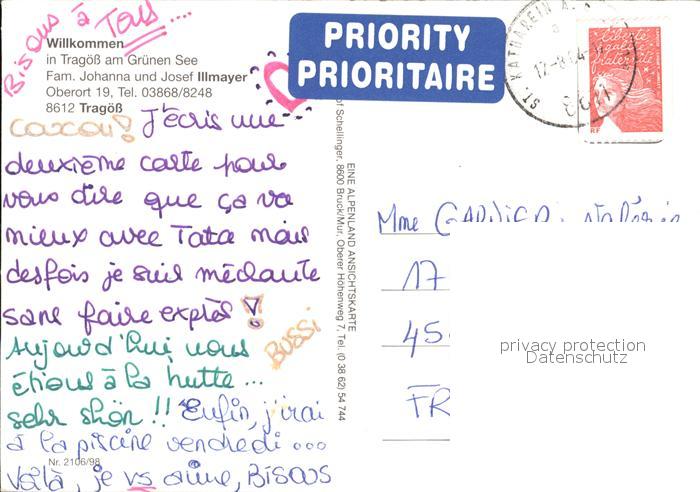 Bisous à Tous....
Willkommen
in Tragöß am Grünen See
Fam. Johanna und Josef Illmayer
Oberort 19, Tel. 03868/8248
8612 Tragöß
PRIORITY
PRIORITAIRE
ST. KATHAREIN A.
8611
liberté
égalité
fraternité
RF
coucou! J'écris une
deuxième carte pour
vous dire que ça va
mieux avec Tata mais
desfois je suis méchante
sans faire exprès!
BUSSI
Aujourd'hui nous
étions à la hutte...
sehr shön!! Enfin, j'irai
à la piscine vendredi ...
Voilà, je vs aime, BISOUS
Nr. 2106/98
EINE ALPENLAND ANSICHTSKARTE
Schellinger, 8600 Bruck/Mur, Oberer Höhenweg 7, Tel. (0 38 62) 54 744
Mme
17
45
FR
privacy protection
Datenschutz